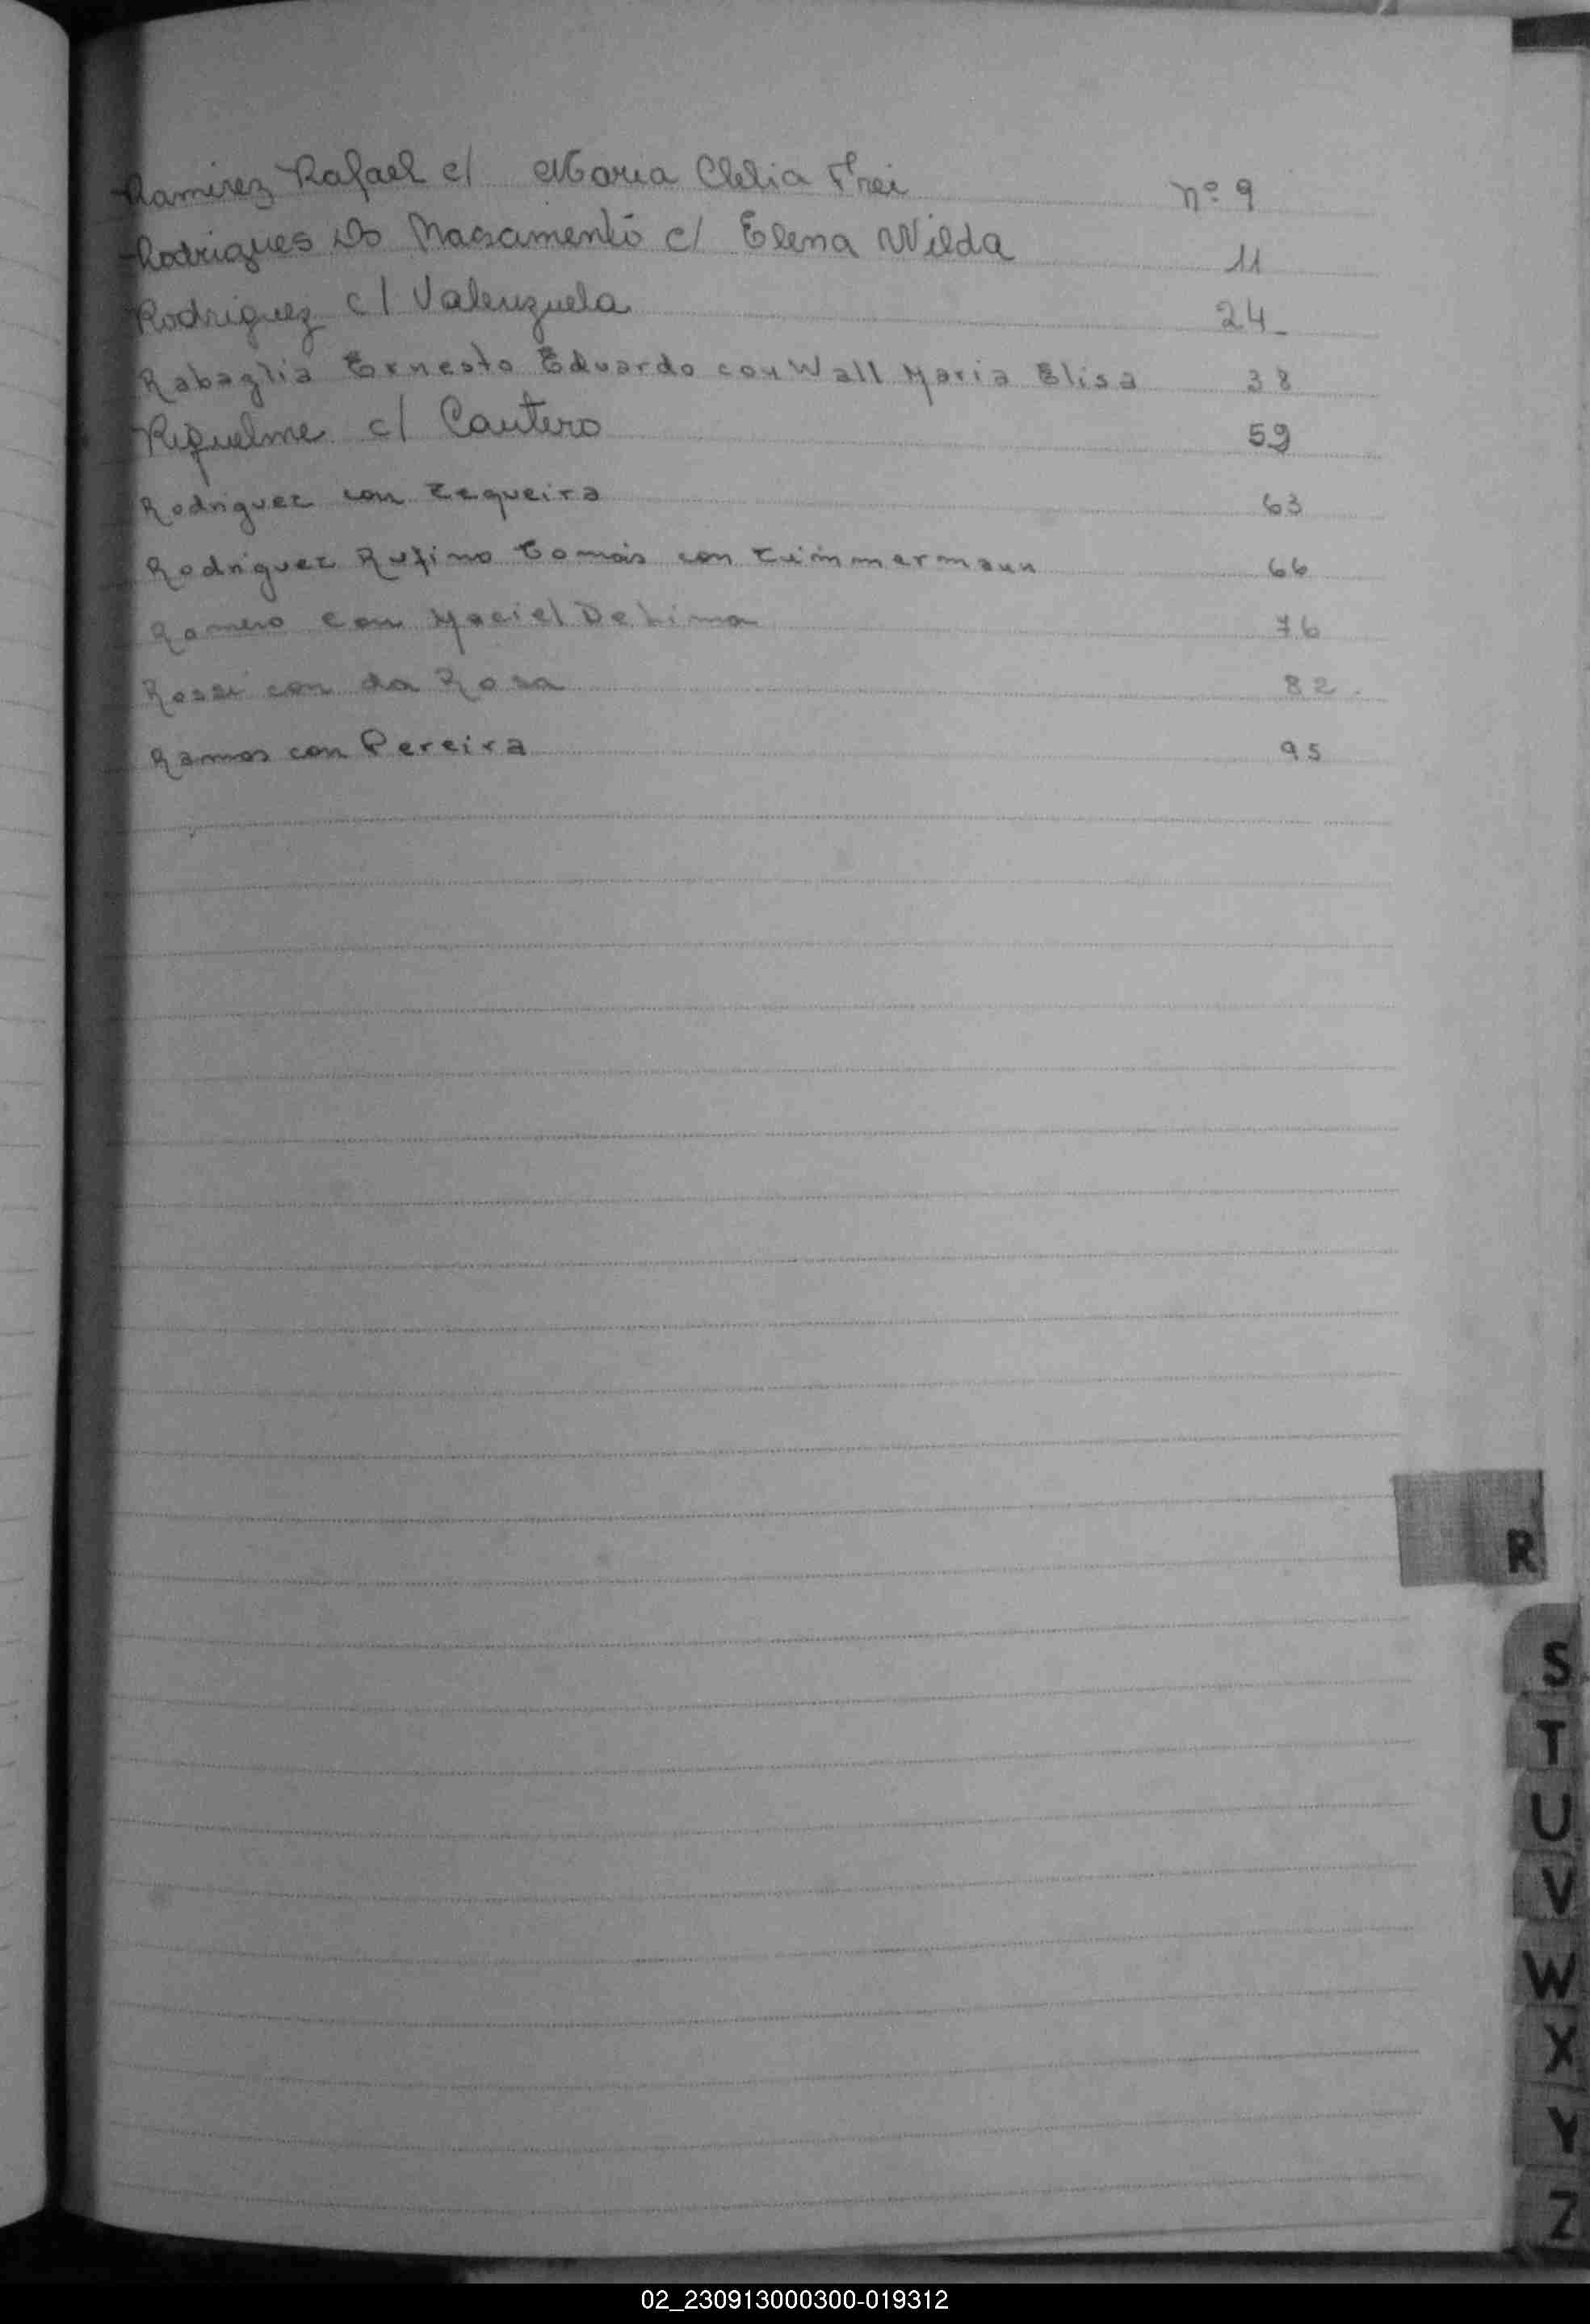 Ramirez Rafael c/ Maria Clelia Frei nº 9
Rodrigues Do Nascimento c/ Elena Wilda 11
Rodriguez c/ Valenzuela 24
Rabaglia Ernesto Eduardo con Wall Maria Elisa 38
Riquelme c/ Cautero 59
Rodriguez con Zequeira 63
Rodriguez Rufino Tomás con Zimmermann 66
Romero con Maciel De Lima 76
Rossi con da Rosa 82
Ramos con Pereira 95
R
S
T
U
V
W
X
Y
Z
02_230913000300-019312